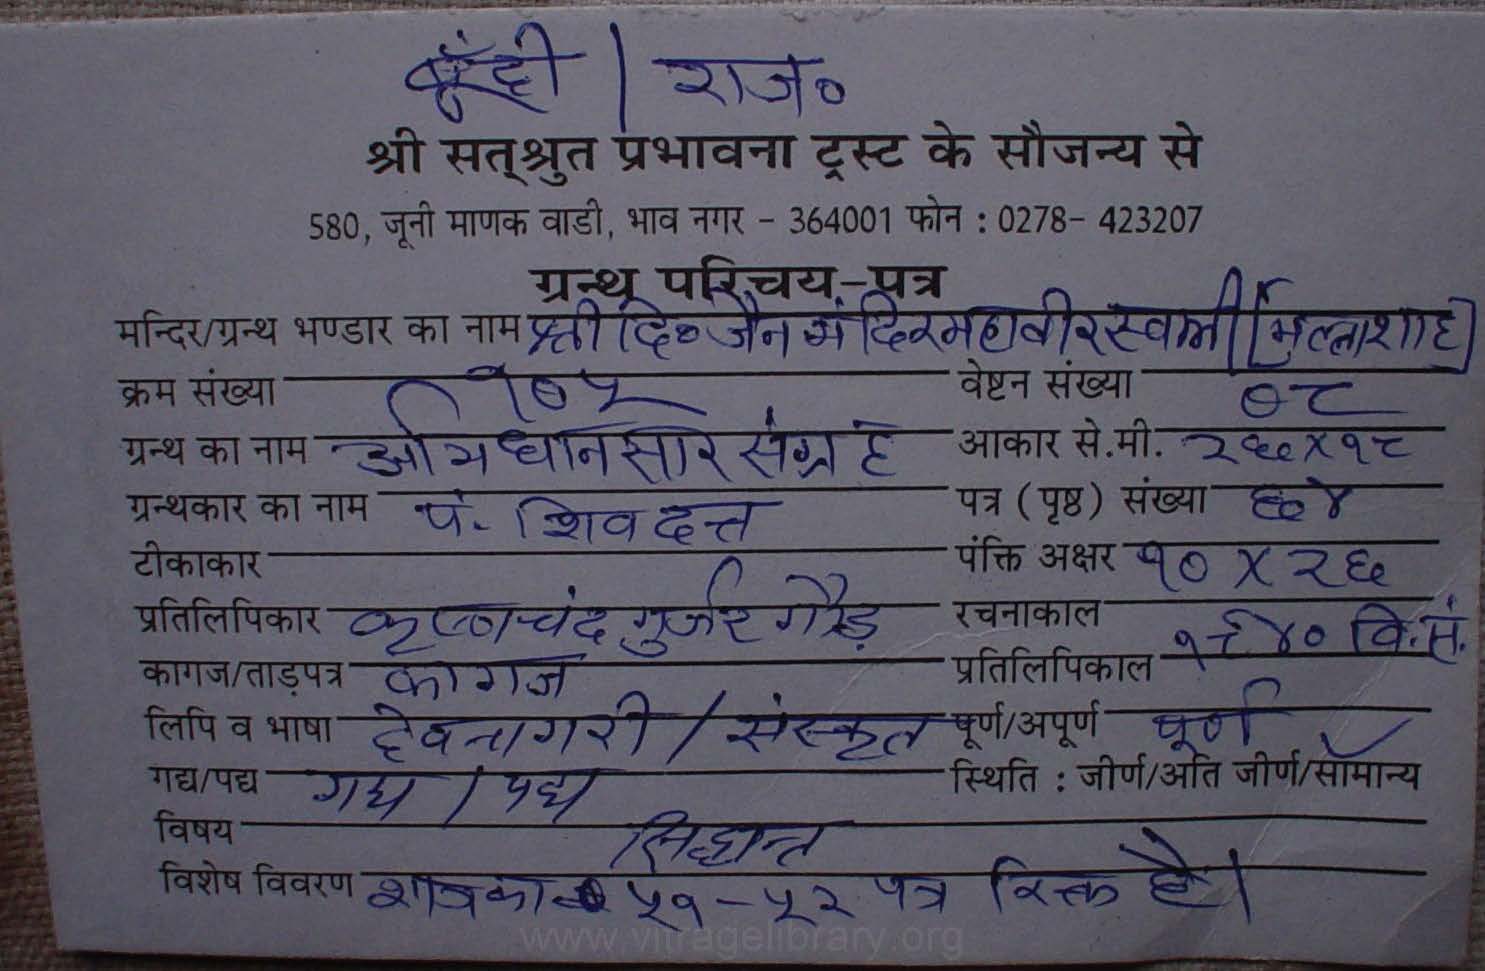 बूँदी | राज०
श्री सत्श्रुत प्रभावना ट्रस्ट के सौजन्य से
580, जूनी माणक वाडी, भाव नगर - 364001 फोन : 0278- 423207
ग्रन्थ परिचय-पत्र
मन्दिर/ग्रन्थ भण्डार का नाम श्री दि० जैन मंदिर महावीर स्वामी [मल्लाशाह]
क्रम संख्या १०५ वेष्टन संख्या ०८
ग्रन्थ का नाम अभिधानसार संग्रह आकार से.मी. २६×१८
ग्रन्थकार का नाम पं. शिवदत्त पत्र (पृष्ठ) संख्या ६४
टीकाकार पंक्ति अक्षर १० X २६
प्रतिलिपिकार कृष्णचंद गुर्जर गौड़ रचनाकाल
कागज/ताड़पत्र कागज प्रतिलिपिकाल १९४० वि.सं.
लिपि व भाषा देवनागरी / संस्कृत पूर्ण/अपूर्ण पूर्ण
गद्य/पद्य गद्य / पद्य स्थिति : जीर्ण/अति जीर्ण/सामान्य
विषय सिद्धान्त
विशेष विवरण ५१-५२ पत्र रिक्त है।
www.vitragelibrary.org